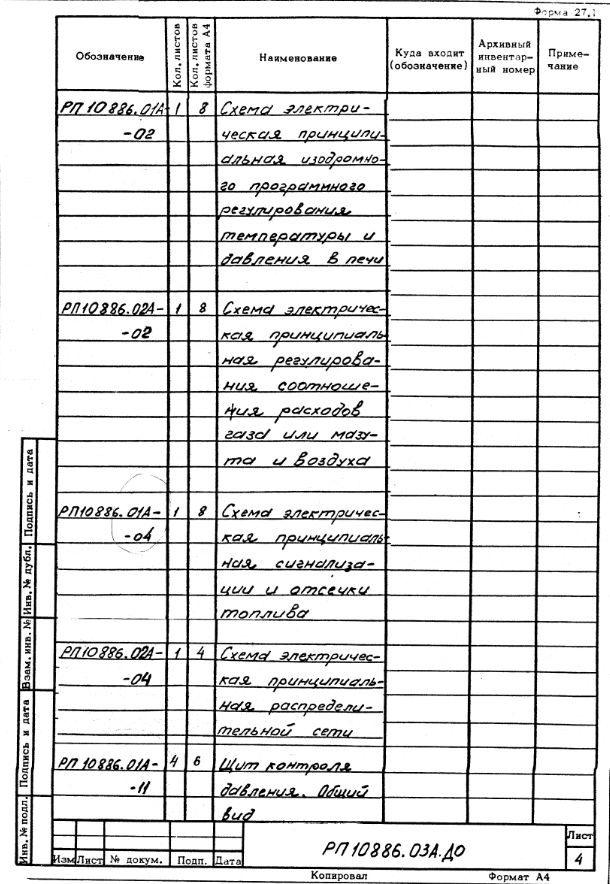 Форма 27.1
Обозначение | Кол. листов | Кол. листов формата А4 | Наименование | Куда входит (обозначение) | Архивный инвентарный номер | Примечание
РП 10886.01А- 1 8 Схема электри-
-02 ческая принципи-
альная изодромно-
го программного
регулирования
температуры и
давления в печи
РП10886.02А- 1 8 Схема электричес-
-02 кая принципиаль
ная регулирова-
ния соотноше-
ния расходов
газа или мазу-
та и воздуха
РП10886.01А- 1 8 Схема электричес-
-04 кая принципиаль
ная сигнализа-
ции и отсечки
топлива
РП10886.02А- 1 4 Схема электричес-
-04 кая принципиаль-
ная распредели-
тельной сети
РП 10886.01А- 4 6 Щит контроля
-11 давления. Общий
вид
Инв. № подл. Подпись и дата Взам. инв. № Инв. № дубл. Подпись и дата
РП10886.03А.ДО
Лист
4
Изм Лист № докум. Подп. Дата
Копировал Формат А4